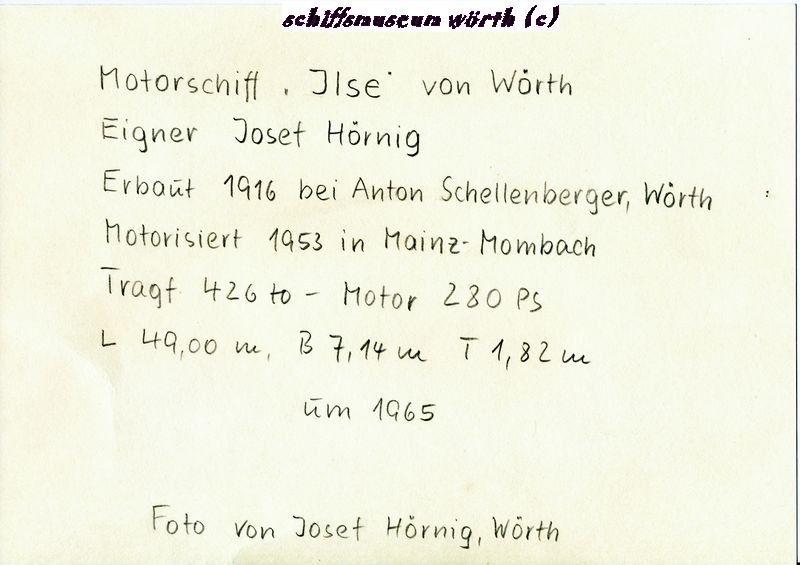 schiffsmuseum wörth (c)
Motorschiff "Ilse" von Wörth
Eigner Josef Hörnig
Erbaut 1916 bei Anton Schellenberger, Wörth
Motorisiert 1953 in Mainz-Mombach
Tragf 426 to - Motor 280 PS
L 49,00 m, B 7,14 m T 1,82 m
um 1965
Foto von Josef Hörnig, Wörth